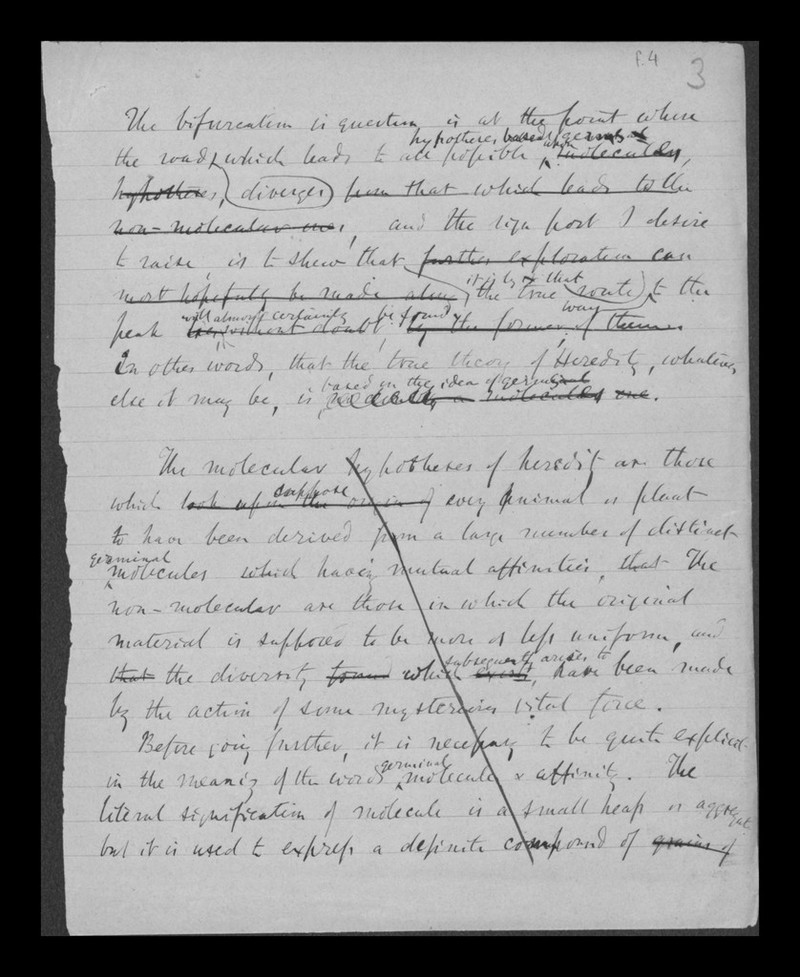 f.4 3
The bifurcation in question is at the point where
hypotheses based upon germs &
the roads which leads to all possible molecules,
hypotheses, diverges from that which leads to the
non-molecular ones, and the sign post I desire
to raise, is to shew that further exploration can
it is by & that
most hopefully be made along the true route to the
will almost certainly be found way
peak without doubt, by the former of them.
In other words, that the true theory of Heredity, whatever
based on the idea of germinal
else it may be, is decidedly a molecules one.
The molecular hypotheses of heredity are those
suppose
which look upon the origin of every animal or plant
to have been derived from a large number of distinct
germinal
molecules which having mutual affinities, that The
non-molecular are those in which the original
material is supposed to be more or less uniform, and
subsequently arises to
that the diversity found which exists, have been made
by the action of some mysterious vital force.
Before going further, it is necessary to be quite explicit
germinal
in the meaning of the words molecule & affinity. The
literal signification of molecule is a small heap or aggregate
but it is used to express a definite compound of grains of